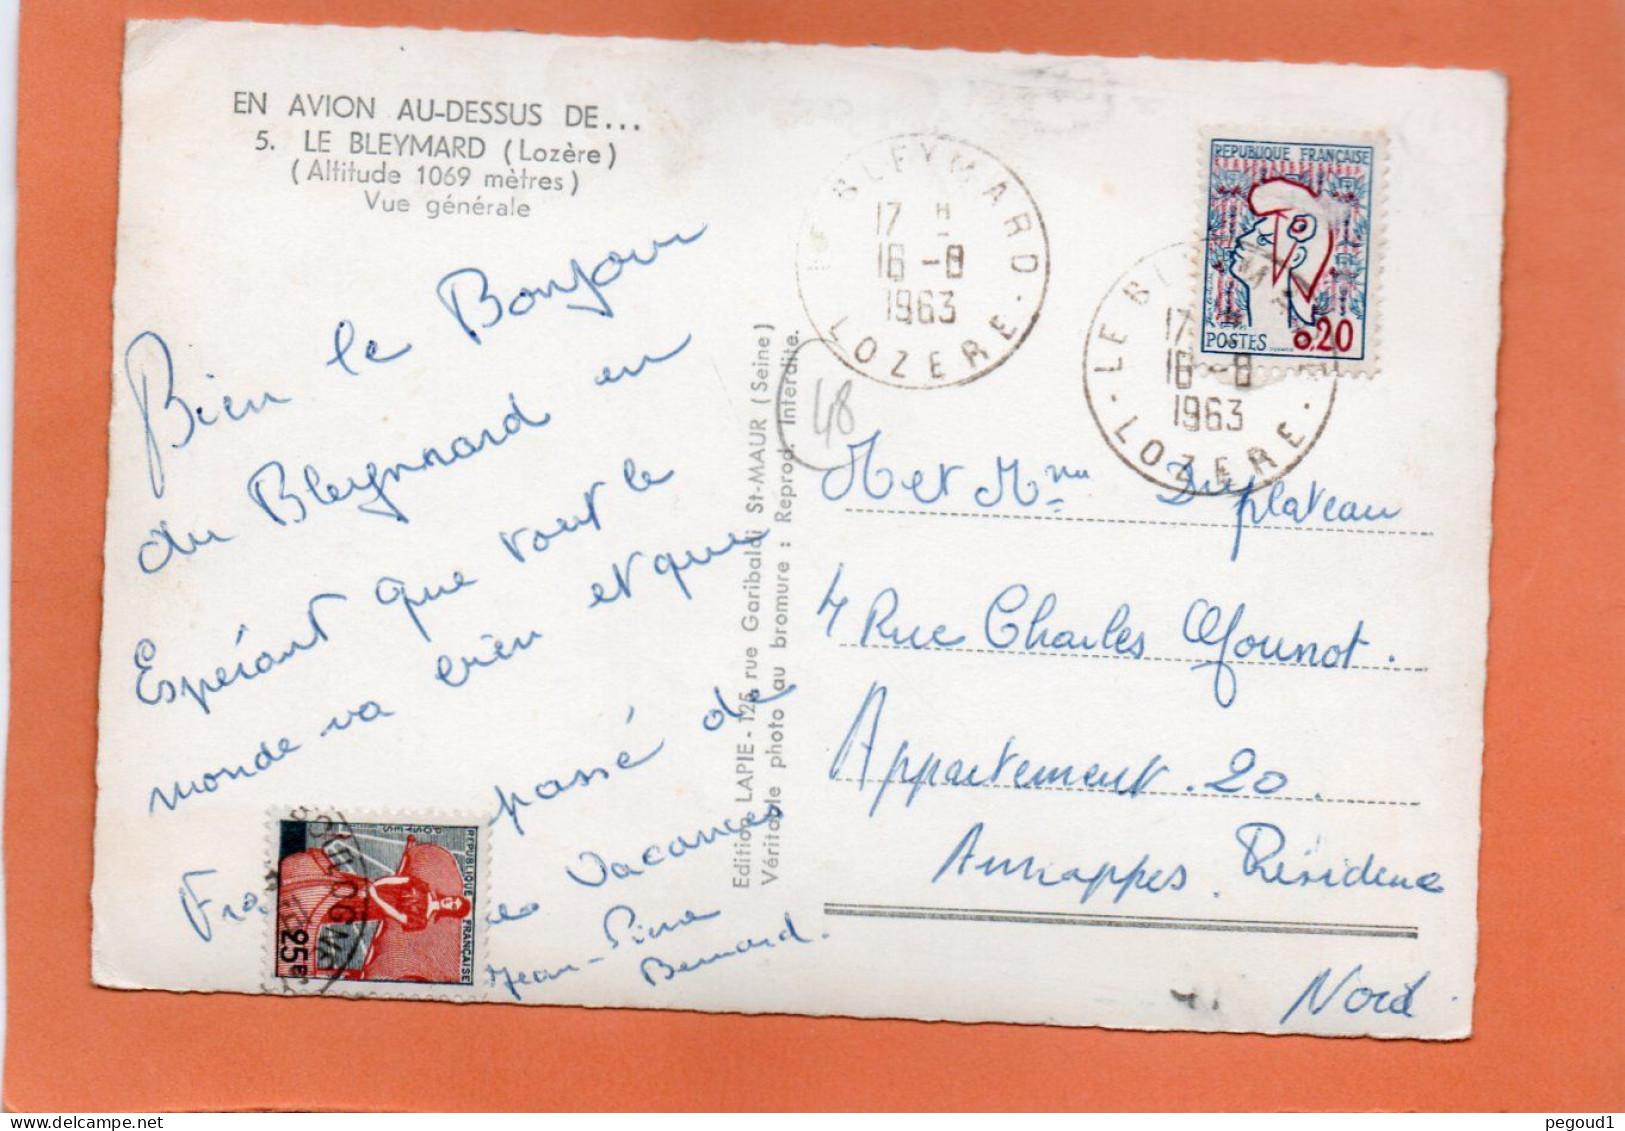 EN AVION AU-DESSUS DE...
5. LE BLEYMARD (Lozère)
(Altitude 1069 mètres)
Vue générale
Bien le Bonjour
du Bleymard en
Espérant que tout le
monde va bien et que
passé de
vacances
Jean-Pierre
Bernard.
REPUBLIQUE FRANÇAISE
POSTES
25c
Edition LAPIE - 125 rue Garibaldi St-MAUR (Seine)
Véritable photo au bromure : Reprod. Interdite.
48
BLEYMARD
17 H
16 -8
1963
LOZERE
REPUBLIQUE FRANÇAISE
POSTES 0,20
LE BLEYMARD
17 H
16 -8
1963
LOZERE
M et Mme Duplateau
4 Rue Charles Gounot.
Appartement. 20.
Annappes. Résidence
Nord
pegoud1